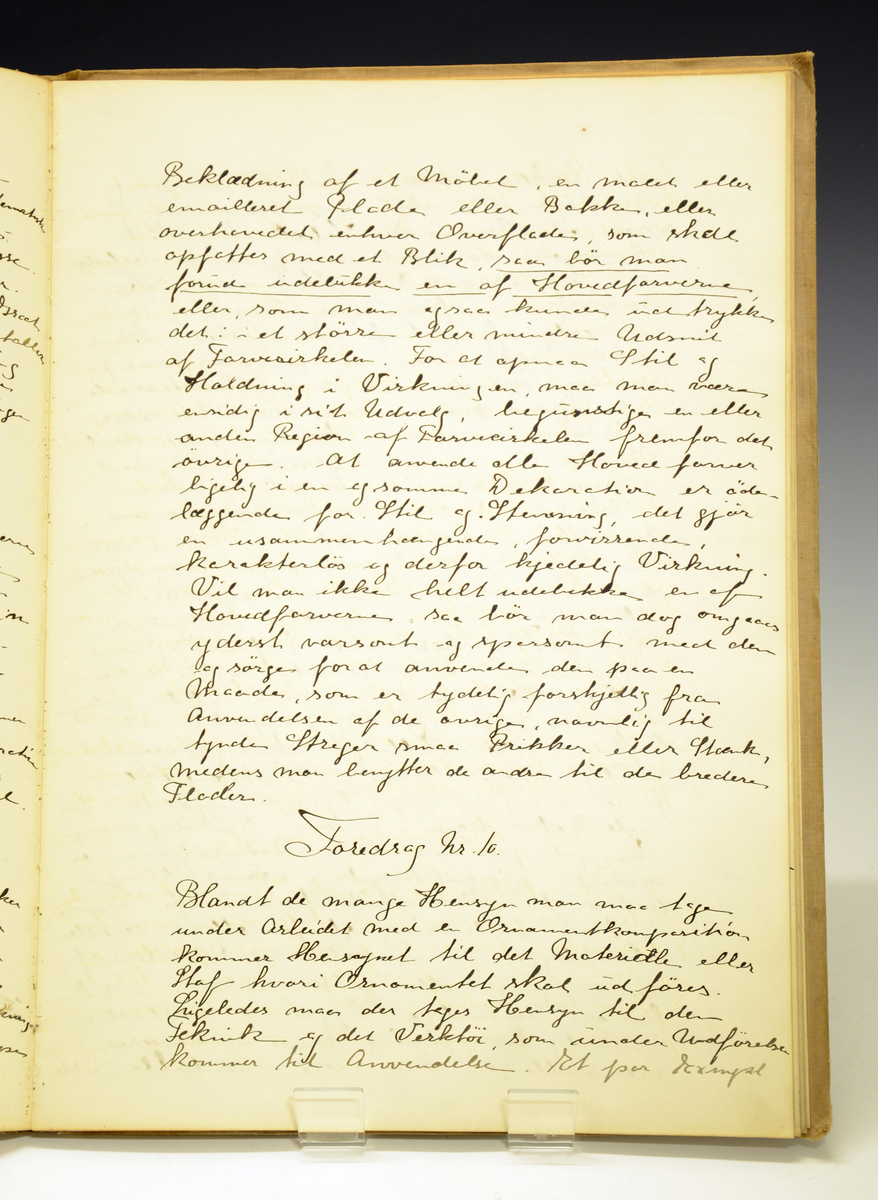 Beklædning af et Möbel, en malet eller
emailleret Flade eller Bakke, eller
overhovedet enhver Overflade, som skal
opfattes med et Blik, saa bör man
forud udelukke en af Hovedfarverne,
eller, som man ogsaa kunde udtrykke
det: - et större eller mindre Udsnit
af Farvecirkelen. For at opnaa Stil og
Holdning i Virkningen, maa man være
ensidig i sit Udvalg, begunstige en eller
anden Region af Farvecirkelen fremfor det
övrige. At anvende alle Hovedfarver
ligelig i en og samme Dekoration er öde-
læggende for Stil og Stemning, det gjör
en usammenhængende, forvirrende,
karakterlös og derfor kjedelig Virkning.
Vil man ikke helt udelukke en af
Hovedfarverne saa bör man dog omgaaes
yderst varsomt og sparsomt med den
og sörge for at anvende den paa en
Maade, som er tydelig forskjellig fra
Anvendelsen af de övrige, navnlig til
tynde Streger smaa Prikker eller Stænk,
medens man benytter de andre til de bredere
Flader.
Foredrag Nr. 10.
Blandt de mange Hensyn man maa tage
under Arbeidet med en Ornamentkomposition
kommer Hensynet til det Materielle eller
Stof hvori Ornamentet skal udföres.
Ligeledes maa der tages Hensyn til den
Teknik og det Verktöi, som under Udförelsen
kommer til Anvendelse. Et par Exmpel